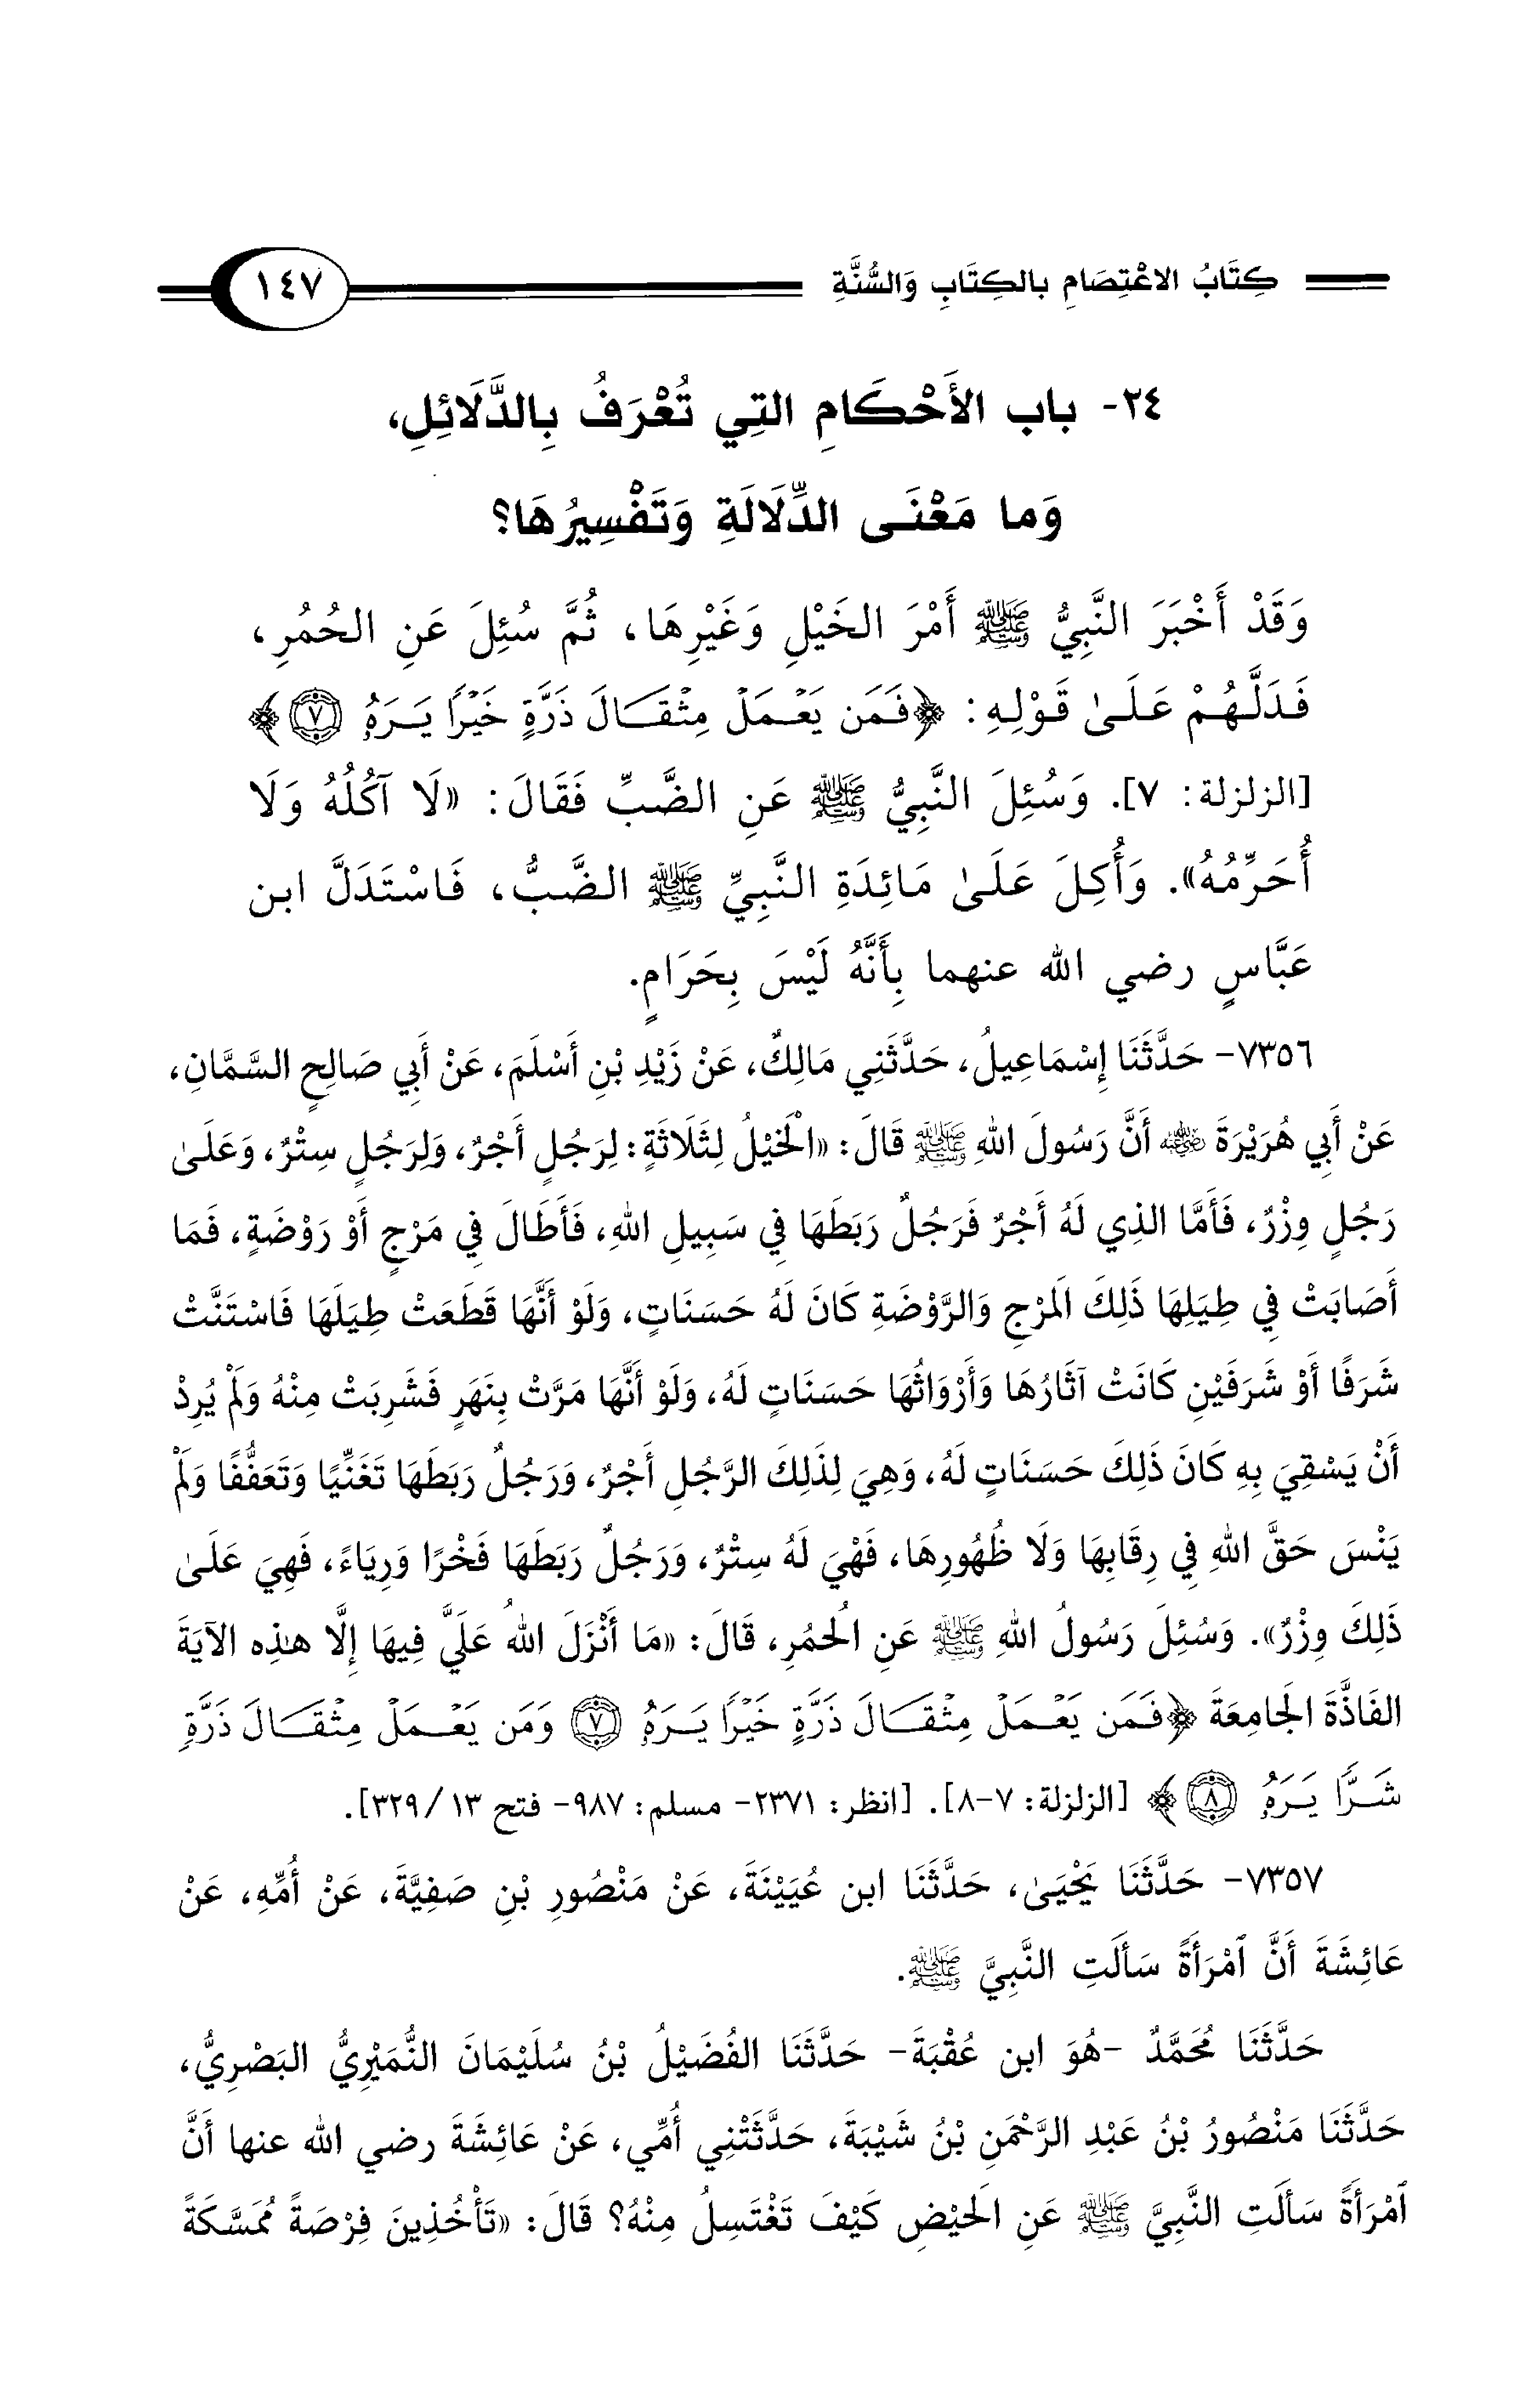 كِتَابُ الاعْتِصَامِ بالكِتَابِ وَالسُّنَّةِ ١٤٧
٢٤- باب الأَحْكَامِ التِي تُعْرَفُ بِالدَّلَائِلِ،
وَما مَعْنَى الدِّلَالَةِ وَتَفْسِيرُهَا؟
وَقَدْ أَخْبَرَ النَّبِيُّ ﷺ أَمْرَ الخَيْلِ وَغَيْرِهَا، ثُمَّ سُئِلَ عَنِ الحُمُرِ،
فَدَلَّهُمْ عَلَىٰ قَوْلِهِ: ﴿فَمَن يَعْمَلْ مِثْقَالَ ذَرَّةٍ خَيْرًا يَرَهُۥ ٧﴾
[الزلزلة: ٧]. وَسُئِلَ النَّبِيُّ ﷺ عَنِ الضَّبِّ فَقَالَ: «لَا آكُلُهُ وَلَا
أُحَرِّمُهُ». وَأُكِلَ عَلَىٰ مَائِدَةِ النَّبِيِّ ﷺ الضَّبُّ، فَاسْتَدَلَّ ابن
عَبَّاسٍ رضي الله عنهما بِأَنَّهُ لَيْسَ بِحَرَامٍ.
٧٣٥٦- حَدَّثَنَا إِسْمَاعِيلُ، حَدَّثَنِي مَالِكٌ، عَنْ زَيْدِ بْنِ أَسْلَمَ، عَنْ أَبِي صَالِحٍ السَّمَّانِ،
عَنْ أَبِي هُرَيْرَةَ رضي الله عنه أَنَّ رَسُولَ اللهِ ﷺ قَالَ: «الْخَيْلُ لِثَلَاثَةٍ: لِرَجُلٍ أَجْرٌ، وَلِرَجُلٍ سِتْرٌ، وَعَلَىٰ
رَجُلٍ وِزْرٌ، فَأَمَّا الذِي لَهُ أَجْرٌ فَرَجُلٌ رَبَطَهَا فِي سَبِيلِ اللهِ، فَأَطَالَ فِي مَرْجٍ أَوْ رَوْضَةٍ، فَمَا
أَصَابَتْ فِي طِيَلِهَا ذَلِكَ المَرْجِ وَالرَّوْضَةِ كَانَ لَهُ حَسَنَاتٍ، وَلَوْ أَنَّهَا قَطَعَتْ طِيَلَهَا فَاسْتَنَّتْ
شَرَفًا أَوْ شَرَفَيْنِ كَانَتْ آثَارُهَا وَأَرْوَاثُهَا حَسَنَاتٍ لَهُ، وَلَوْ أَنَّهَا مَرَّتْ بِنَهَرٍ فَشَرِبَتْ مِنْهُ وَلَمْ يُرِدْ
أَنْ يَسْقِيَ بِهِ كَانَ ذَلِكَ حَسَنَاتٍ لَهُ، وَهِيَ لِذَلِكَ الرَّجُلِ أَجْرٌ، وَرَجُلٌ رَبَطَهَا تَغَنِّيًا وَتَعَفُّفًا وَلَمْ
يَنْسَ حَقَّ اللهِ فِي رِقَابِهَا وَلَا ظُهُورِهَا، فَهْيَ لَهُ سِتْرٌ، وَرَجُلٌ رَبَطَهَا فَخْرًا وَرِيَاءً، فَهِيَ عَلَىٰ
ذَلِكَ وِزْرٌ». وَسُئِلَ رَسُولُ اللهِ ﷺ عَنِ الُحمُرِ، قَالَ: «مَا أَنْزَلَ اللهُ عَلَيَّ فِيهَا إِلَّا هذِه الآيَةَ
الفَاذَّةَ الجَامِعَةَ ﴿فَمَن يَعْمَلْ مِثْقَالَ ذَرَّةٍ خَيْرًا يَرَهُۥ ٧ وَمَن يَعْمَلْ مِثْقَالَ ذَرَّةٍ
شَرًّا يَرَهُۥ ٨﴾ [الزلزلة: ٧-٨]. [انظر: ٢٣٧١- مسلم: ٩٨٧- فتح ١٣/ ٣٢٩].
٧٣٥٧- حَدَّثَنَا يَحْيَىٰ، حَدَّثَنَا ابن عُيَيْنَةَ، عَنْ مَنْصُورِ بْنِ صَفِيَّةَ، عَنْ أُمِّهِ، عَنْ
عَائِشَةَ أَنَّ ٱمْرَأَةً سَأَلَتِ النَّبِيَّ ﷺ.
حَدَّثَنَا مُحَمَّدٌ -هُوَ ابن عُقْبَةَ- حَدَّثَنَا الفُضَيْلُ بْنُ سُلَيْمَانَ النُّمَيْرِيُّ البَصْرِيُّ،
حَدَّثَنَا مَنْصُورُ بْنُ عَبْدِ الرَّحْمَنِ بْنُ شَيْبَةَ، حَدَّثَتْنِي أُمِّي، عَنْ عَائِشَةَ رضي الله عنها أَنَّ
ٱمْرَأَةً سَأَلَتِ النَّبِيَّ ﷺ عَنِ الَحيْضِ كَيْفَ تَغْتَسِلُ مِنْهُ؟ قَالَ: «تَأْخُذِينَ فِرْصَةً مُمَسَّكَةً